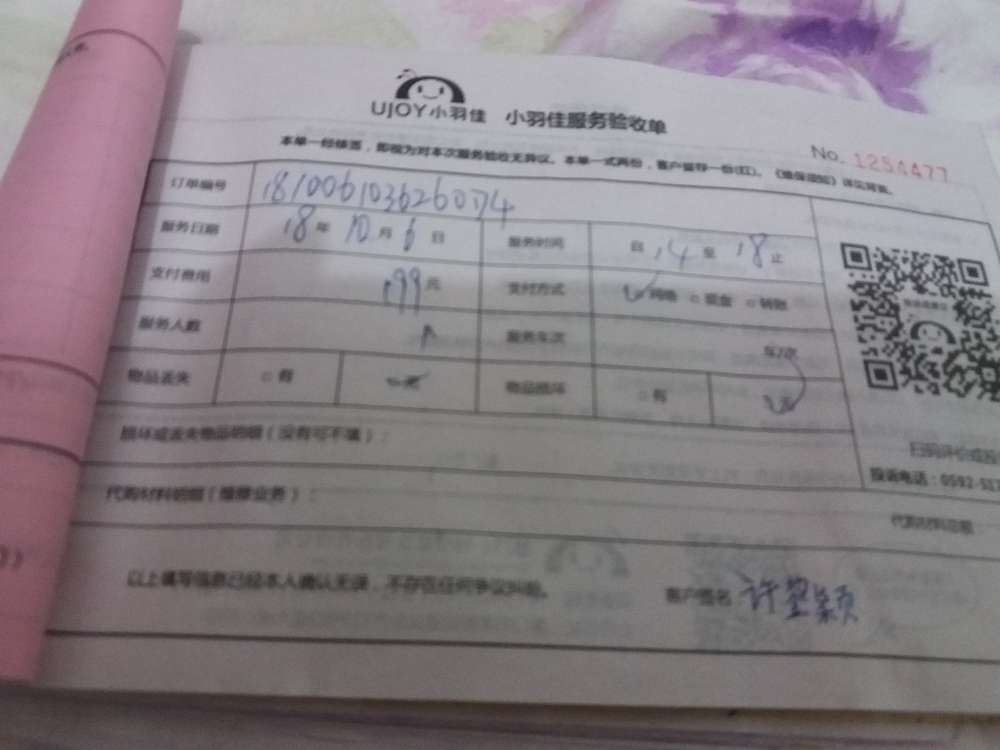 UJOY小羽佳 小羽佳服务验收单
No. 1254477
本单一经签, 即视为对本次服务验收无异议。本单一式两份, 客户留存一份(红)。《维保须知》详见背面。
订单编号 181006103626074
服务日期 18年 10月 6日 服务时间 自 14 至 18 止
支付费用 199元 支付方式 网络 □现金 □转账
服务人数 人 服务车次 车/次
物品丢失 □有 物品损坏 □有 无
损坏或丢失物品明细(没有可不填):
扫码评价或投
投诉电话:0592-517
代购材料明细(维修业务):
代购材料总额:
以上填写信息已经本人确认无误, 不存在任何争议纠纷。
客户签名 许 颖